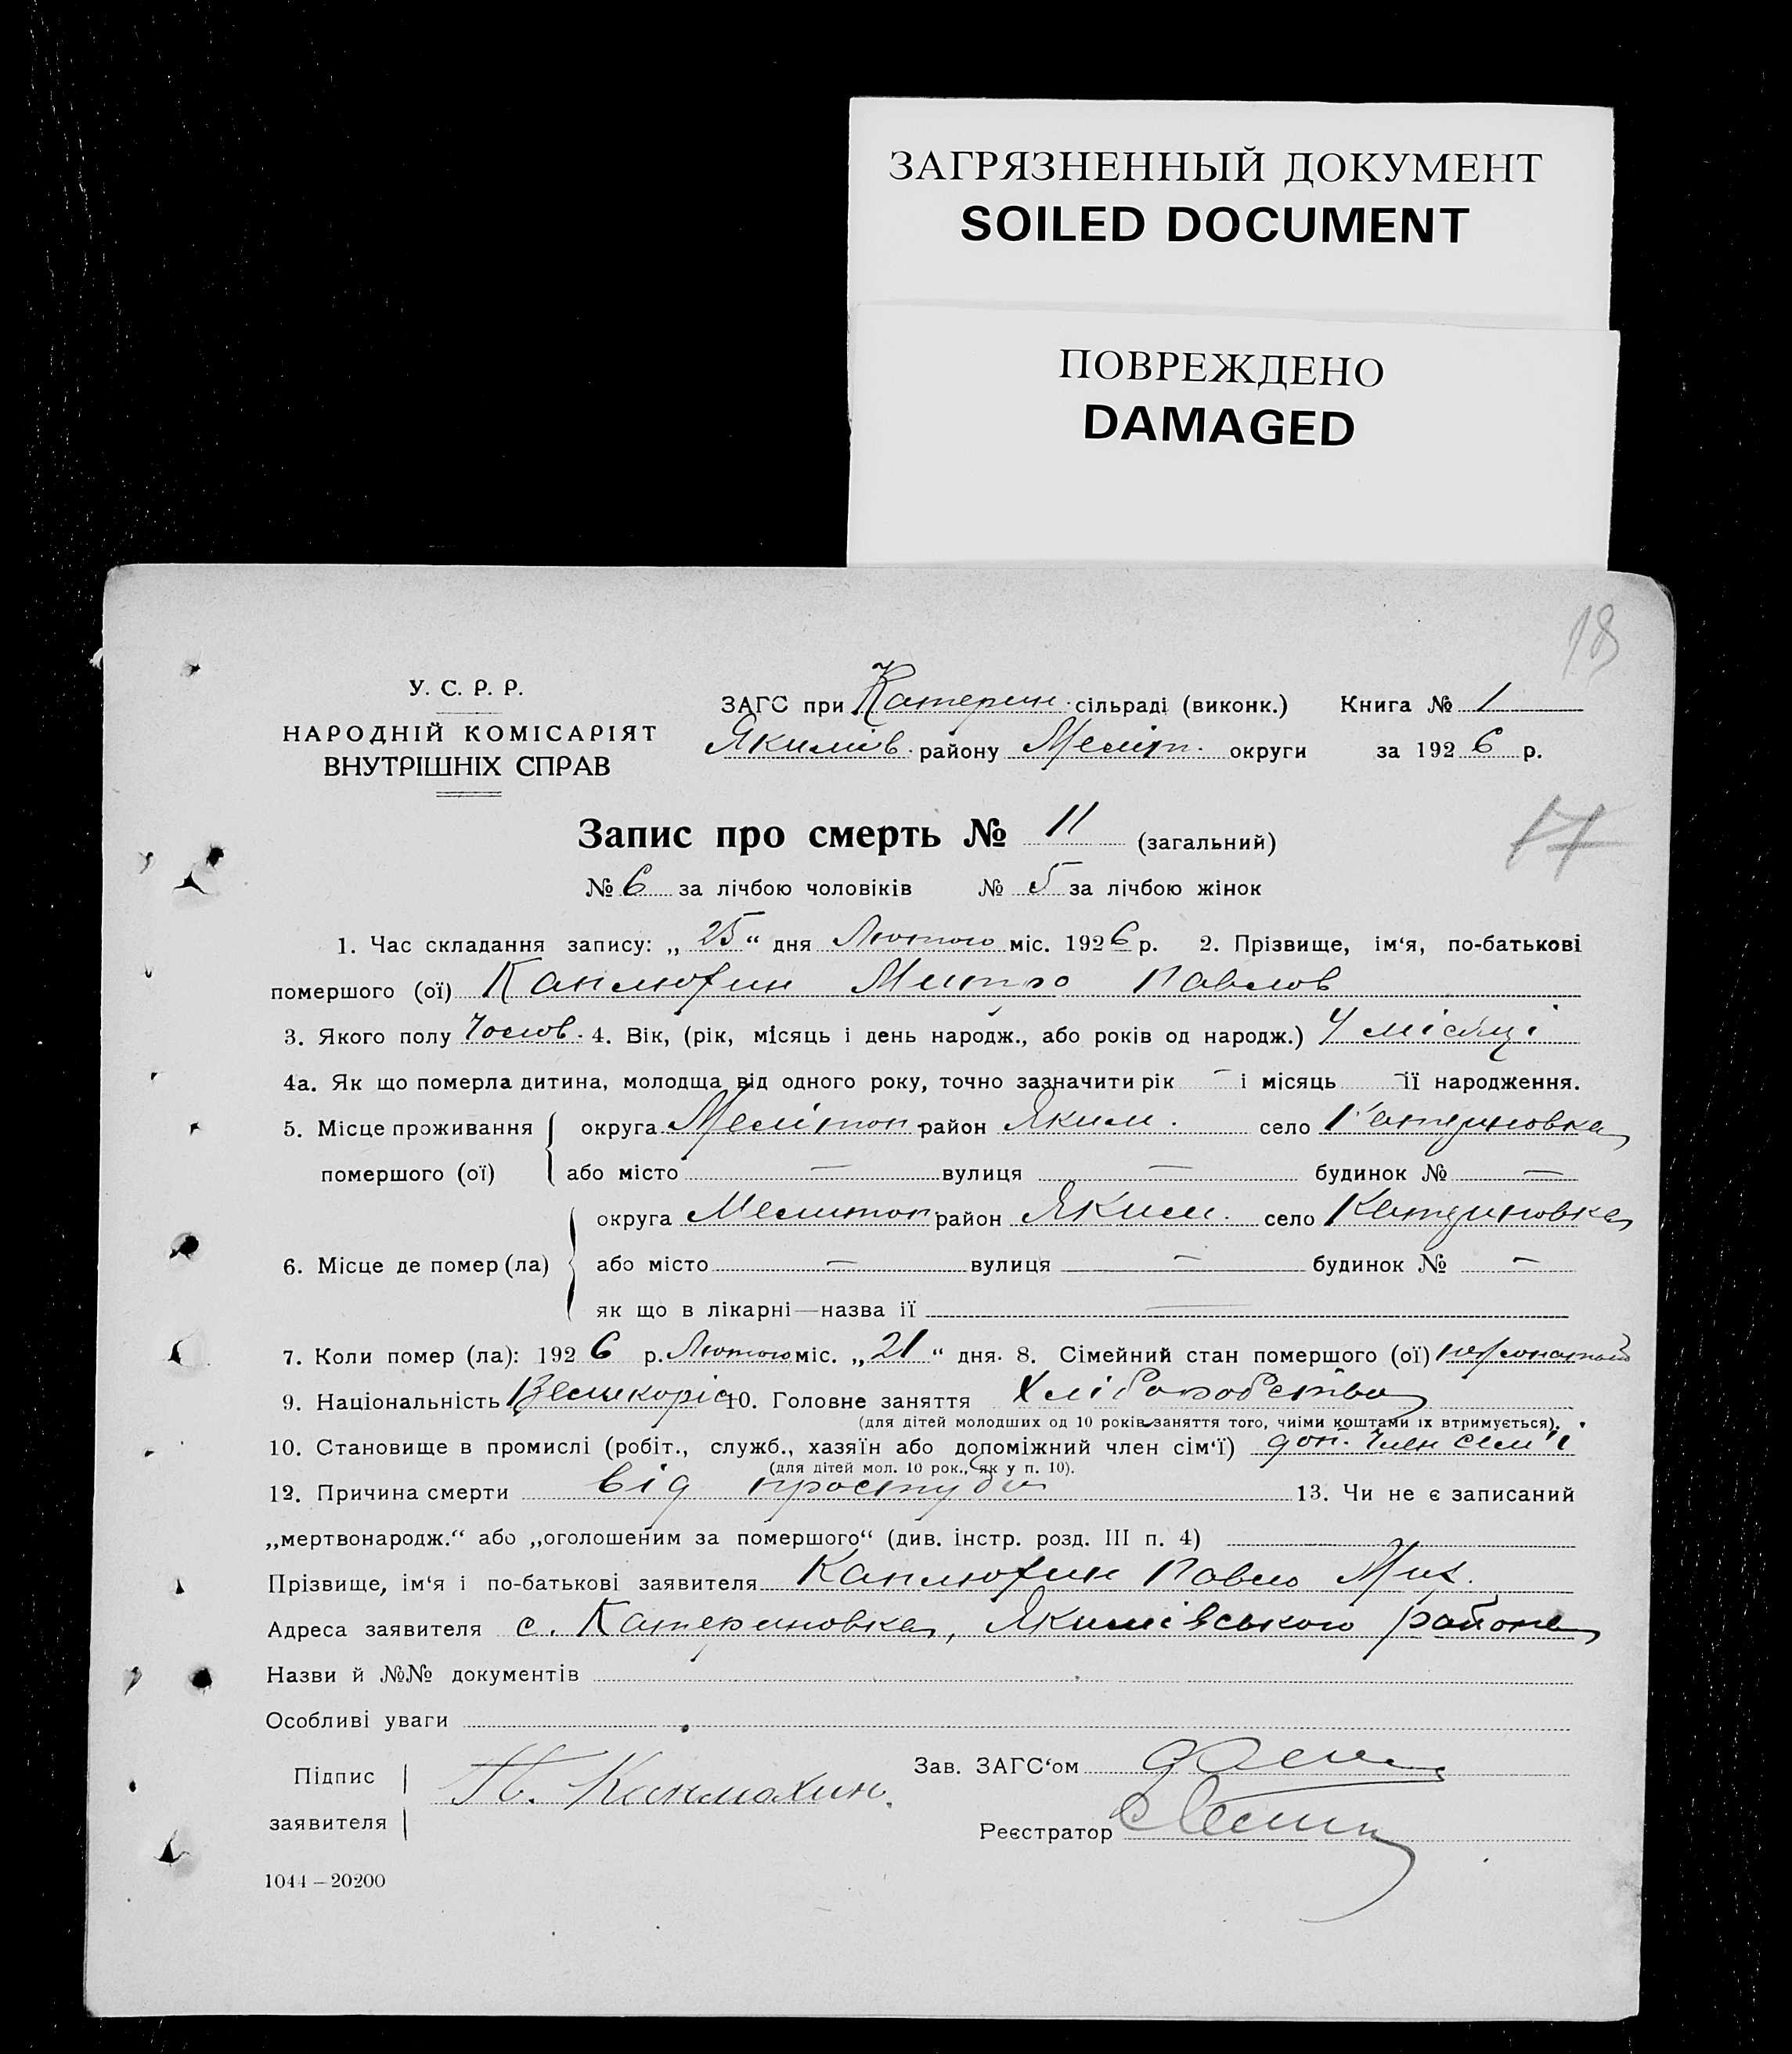 ЗАГРЯЗНЕННЫЙ ДОКУМЕНТ
SOILED DOCUMENT
ПОВРЕЖДЕНО
DAMAGED
18
У. С. Р. Р.
НАРОДНІЙ КОМІСАРІЯТ
ВНУТРІШНІХ СПРАВ
ЗАГС при Катерин. сільраді (виконк.) Книга № 1
Якимів. району Меліт. округи за 1926 р.
17
Запис про смерть № 11 (загальний)
№ 6 за лічбою чоловіків № 5 за лічбою жінок
1. Час складання запису: „25“ дня Лютого міс. 1926 р. 2. Прізвище, ім‘я, по-батькові
помершого (ої) Каплюхин Митро Павлов
3. Якого полу Чолов. 4. Вік, (рік, місяць і день народж., або років од народж.) 4 місяці
4а. Як що померла дитина, молодща від одного року, точно зазначити рік — і місяць — її народження.
5. Місце проживання помершого (ої) округа Мелітоп. район Яким. село Катериновка
або місто — вулиця — будинок № —
6. Місце де помер (ла) округа Мелитоп. район Яким. село Катериновка
або місто — вулиця — будинок № —
як що в лікарні—назва її —
7. Коли помер (ла): 1926 р. Лютого міс. „21“ дня. 8. Сімейний стан помершого (ої)
9. Національність Великоріс 10. Головне заняття Хліборобство
(для дітей молодших од 10 років заняття того, чиїми коштами їх втримується).
10. Становище в промислі (робіт., служб., хазяїн або допоміжний член сім‘ї) доп. член сем'ї
(для дітей мол. 10 рок., як у п. 10).
12. Причина смерти від простуди 13. Чи не є записаний
„мертвонародж.“ або „оголошеним за помершого“ (див. інстр. розд. III п. 4)
Прізвище, ім‘я і по-батькові заявителя Каплюхин Павло Мих.
Адреса заявителя с. Катериновка, Якимівського района
Назви й №№ документів
Особливі уваги
Підпис заявителя П. Каплюхин.
Зав. ЗАГС‘ом
Реєстратор
1044—20200